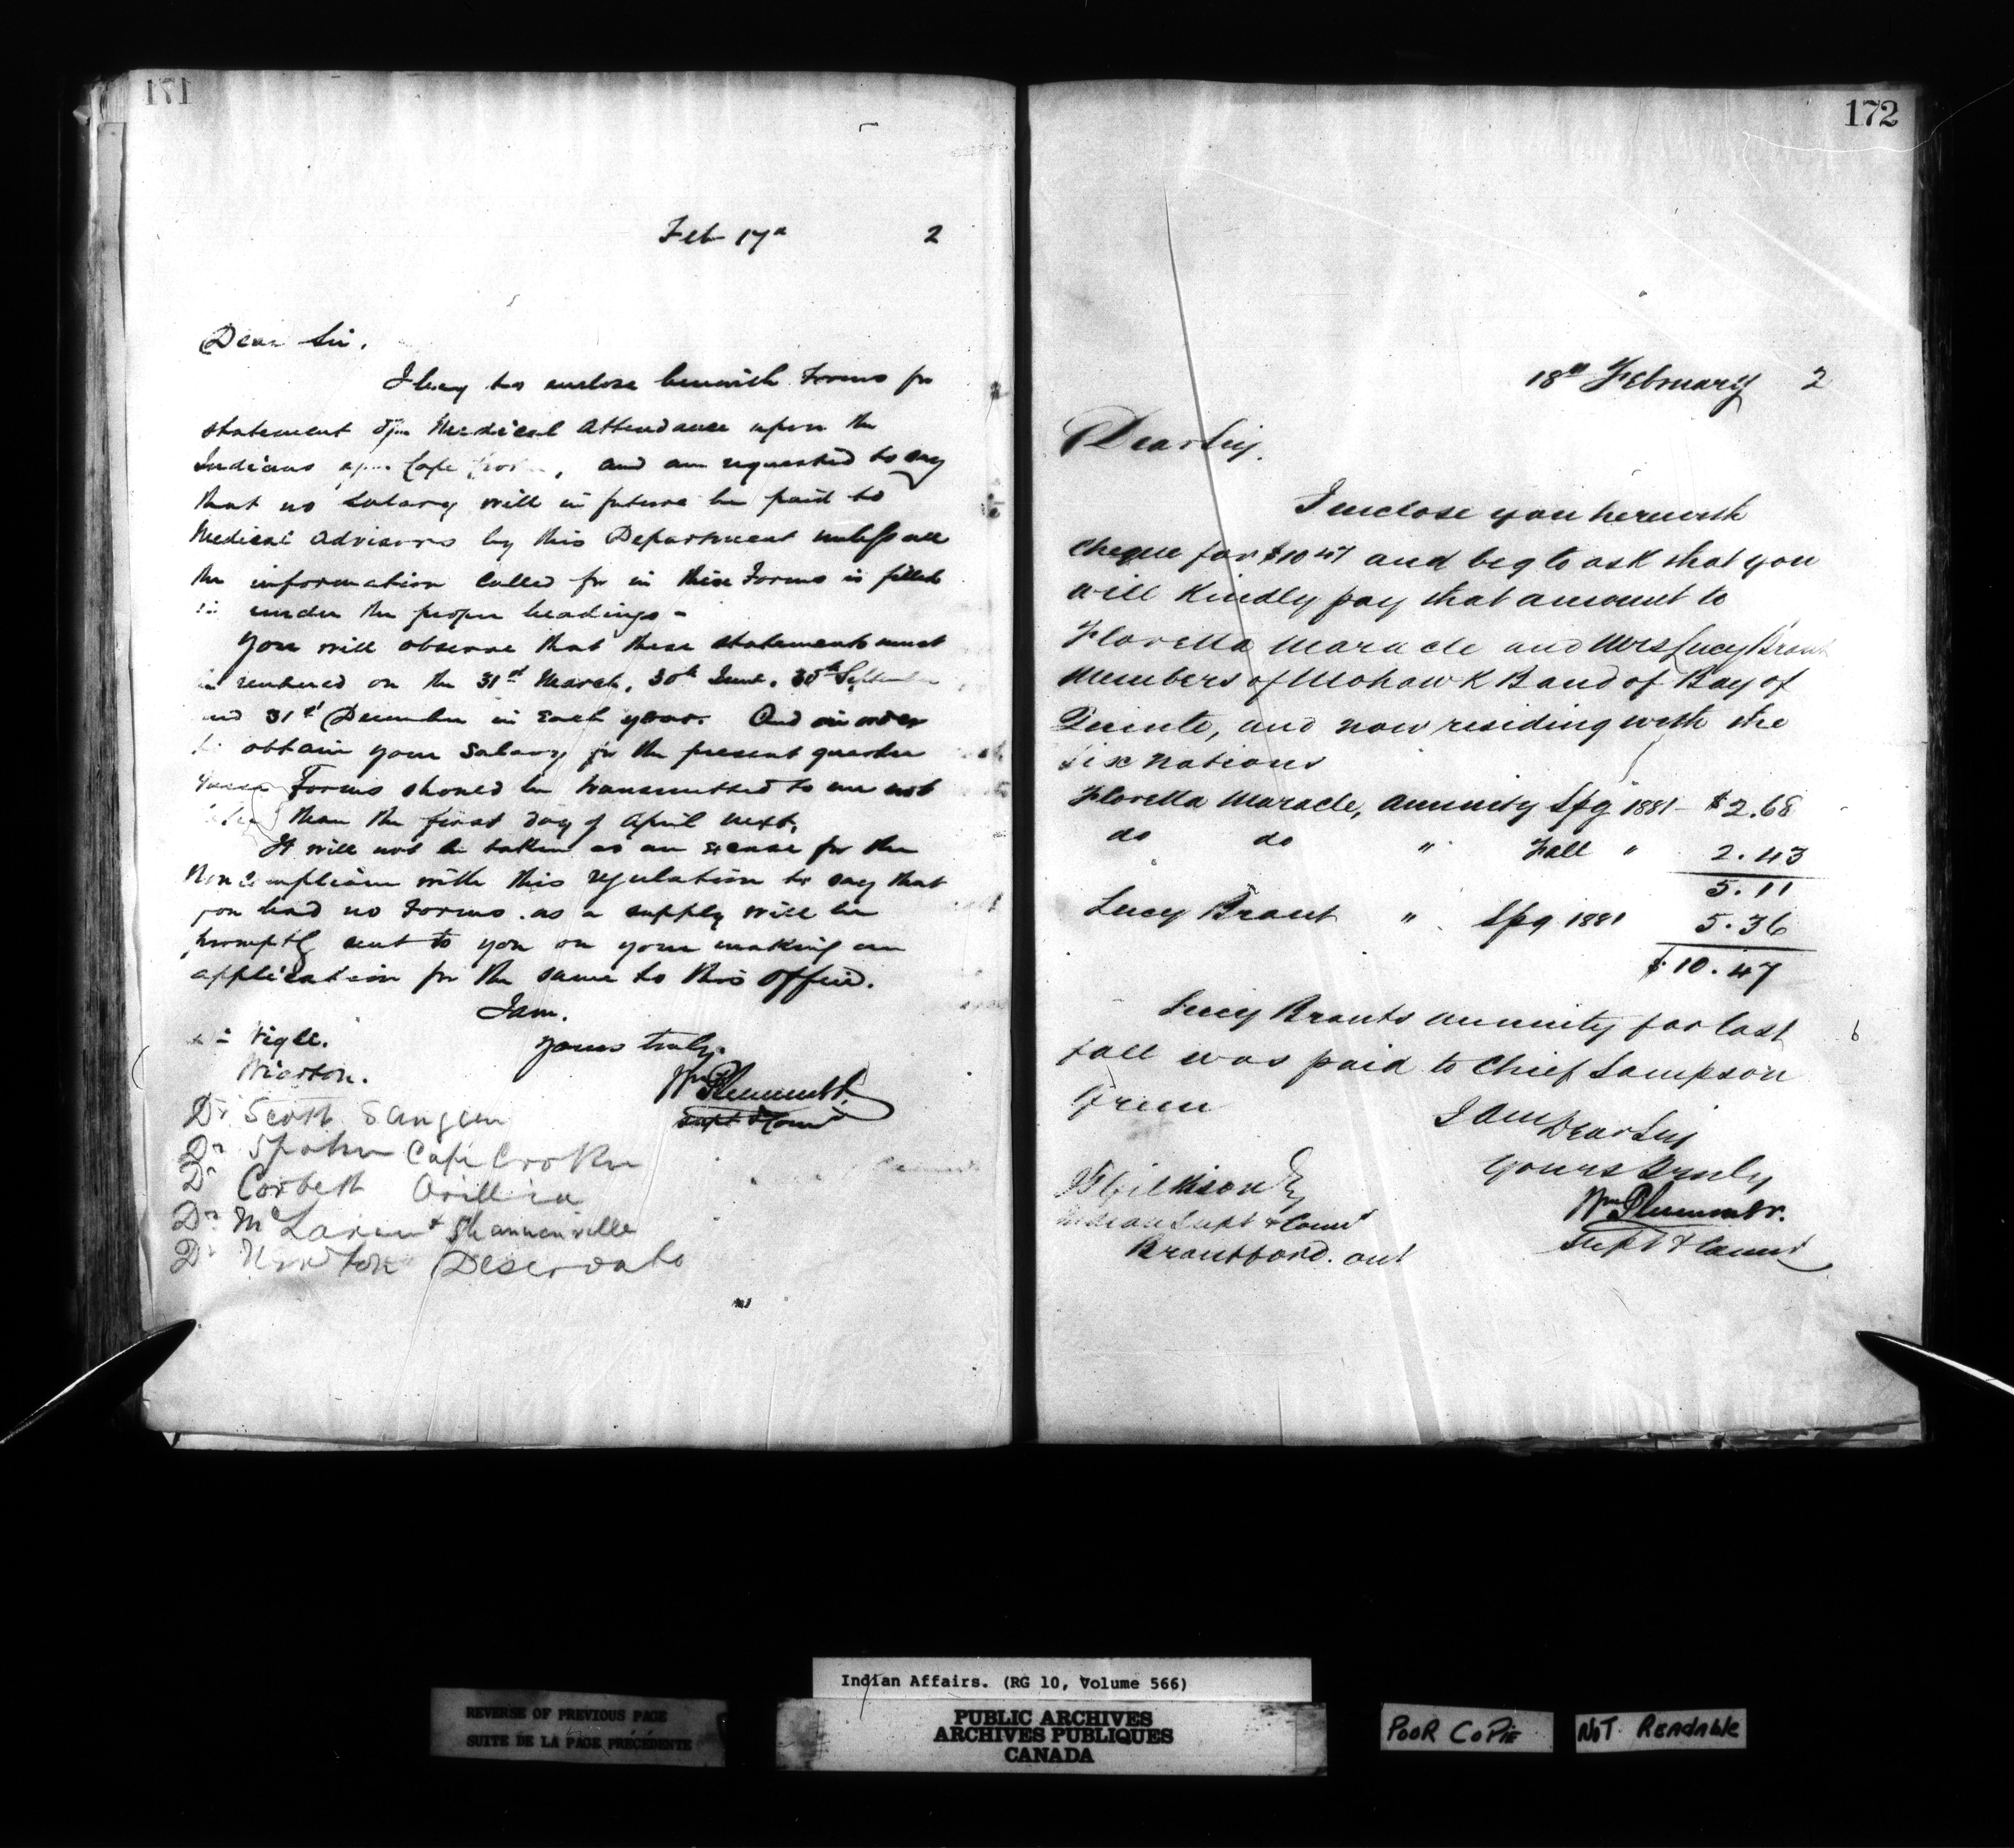 171
Feb 17th 2
Dear Sir,
I beg to enclose herewith Forms for
statement of Medical Attendance upon the
Indians Cape and am requested to say
that no salary will in future be paid to
Medical advisors by this Department unless all
the information called for in these Forms is filled
in under the proper headings -
You will observe that these statements must
rendered on the 31st March, 30th June, 30th September
and 31st December in each year. And in order
to obtain your salary for the present quarter
these Forms should be transmitted to me not
later than the first day of April next,
It will not be taken as an excuse for the
Non compliance with this regulation to say that
you had no Forms. as a supply will be
promptly sent to you on your making an
application for the same to this office.
I am.
Yours truly.
Wigle.
Wiarton.
Wm Plummer.
Supt & Comr
Dr Scott Saugeen
Dr Spohn Cape Croker
Dr Corbett Orillia
Dr McLaren Shannonville
Dr Newton Deseronto
172
18th February 2
Dear Sir,
I enclose you herewith
cheque for $10 47 and beg to ask that you
will kindly pay that amount to
Florella Maracle and Mrs Lucy Brant
Members of Mohawk Band of Bay of
Quinte, and now residing with the
Six Nations
Florella Maracle, annuity Spg 1881 - $2.68
do do " Fall " 2.43
5.11
Lucy Brant " Spg 1881 5.36
$10.47
Lucy Brants annuity for last
fall was paid to Chief Sampson
Green
I am Dear Sir
Yours Truly
Wm Plummer.
Supt & Comr
J T Gilkison Esq
Indian Supt & Comr
Brantford. Ont
Indian Affairs. (RG 10, Volume 566)
REVERSE OF PREVIOUS PAGE
SUITE DE LA PAGE PRÉCÉDENTE
PUBLIC ARCHIVES
ARCHIVES PUBLIQUES
CANADA
POOR COPIE
NOT READABLE